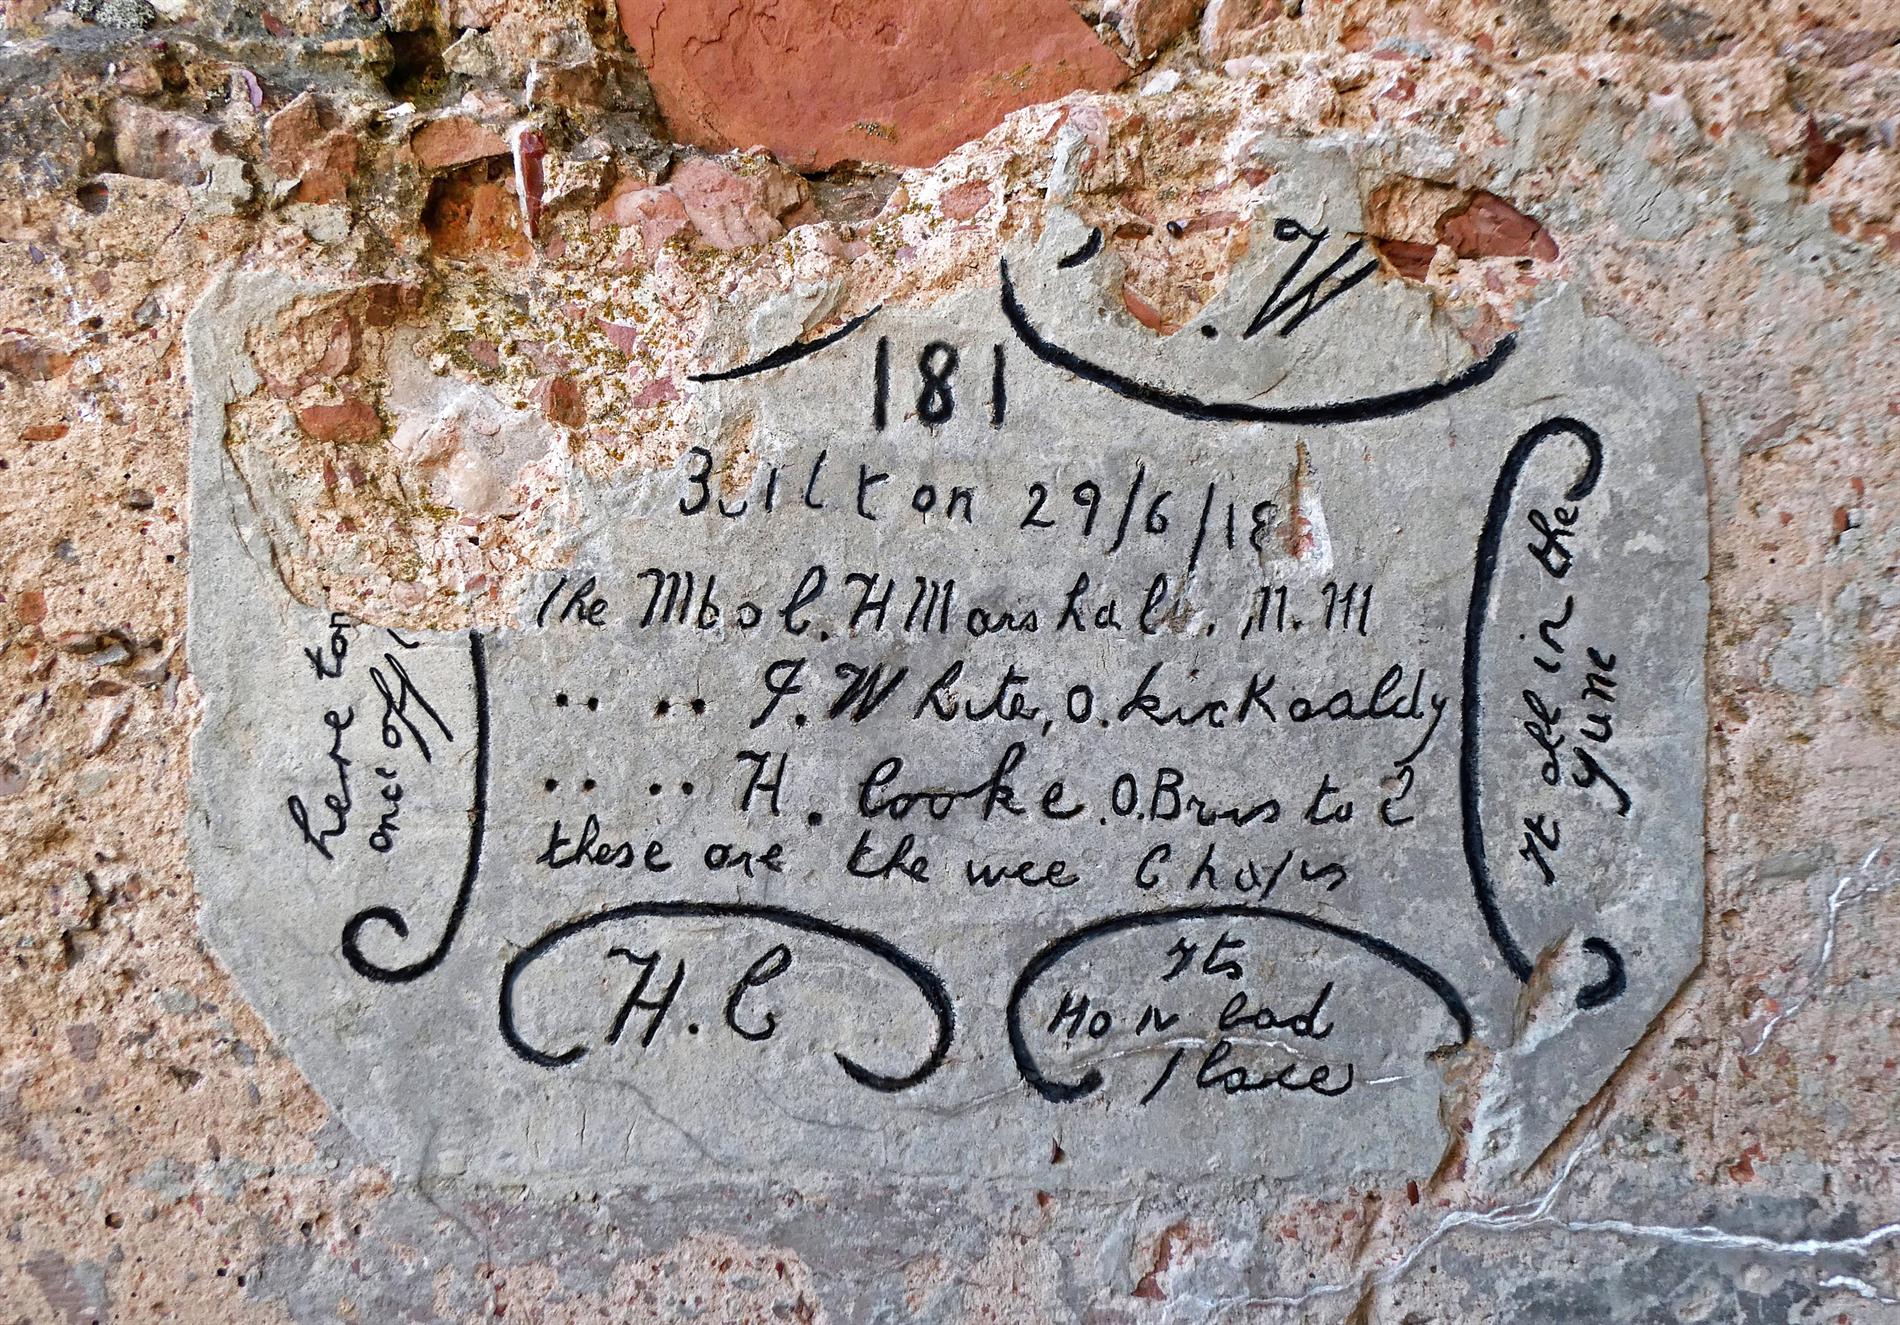 . W
181
Built on 29/6/18
The Mbol. H Marshall. M. M
.. .. J. White, O. kirkcaldy
.. .. H. Cooke. O. Bristol
these are the wee Chaps
here to
once off
It all in the
Yune
H. C
Its
No bad
Place